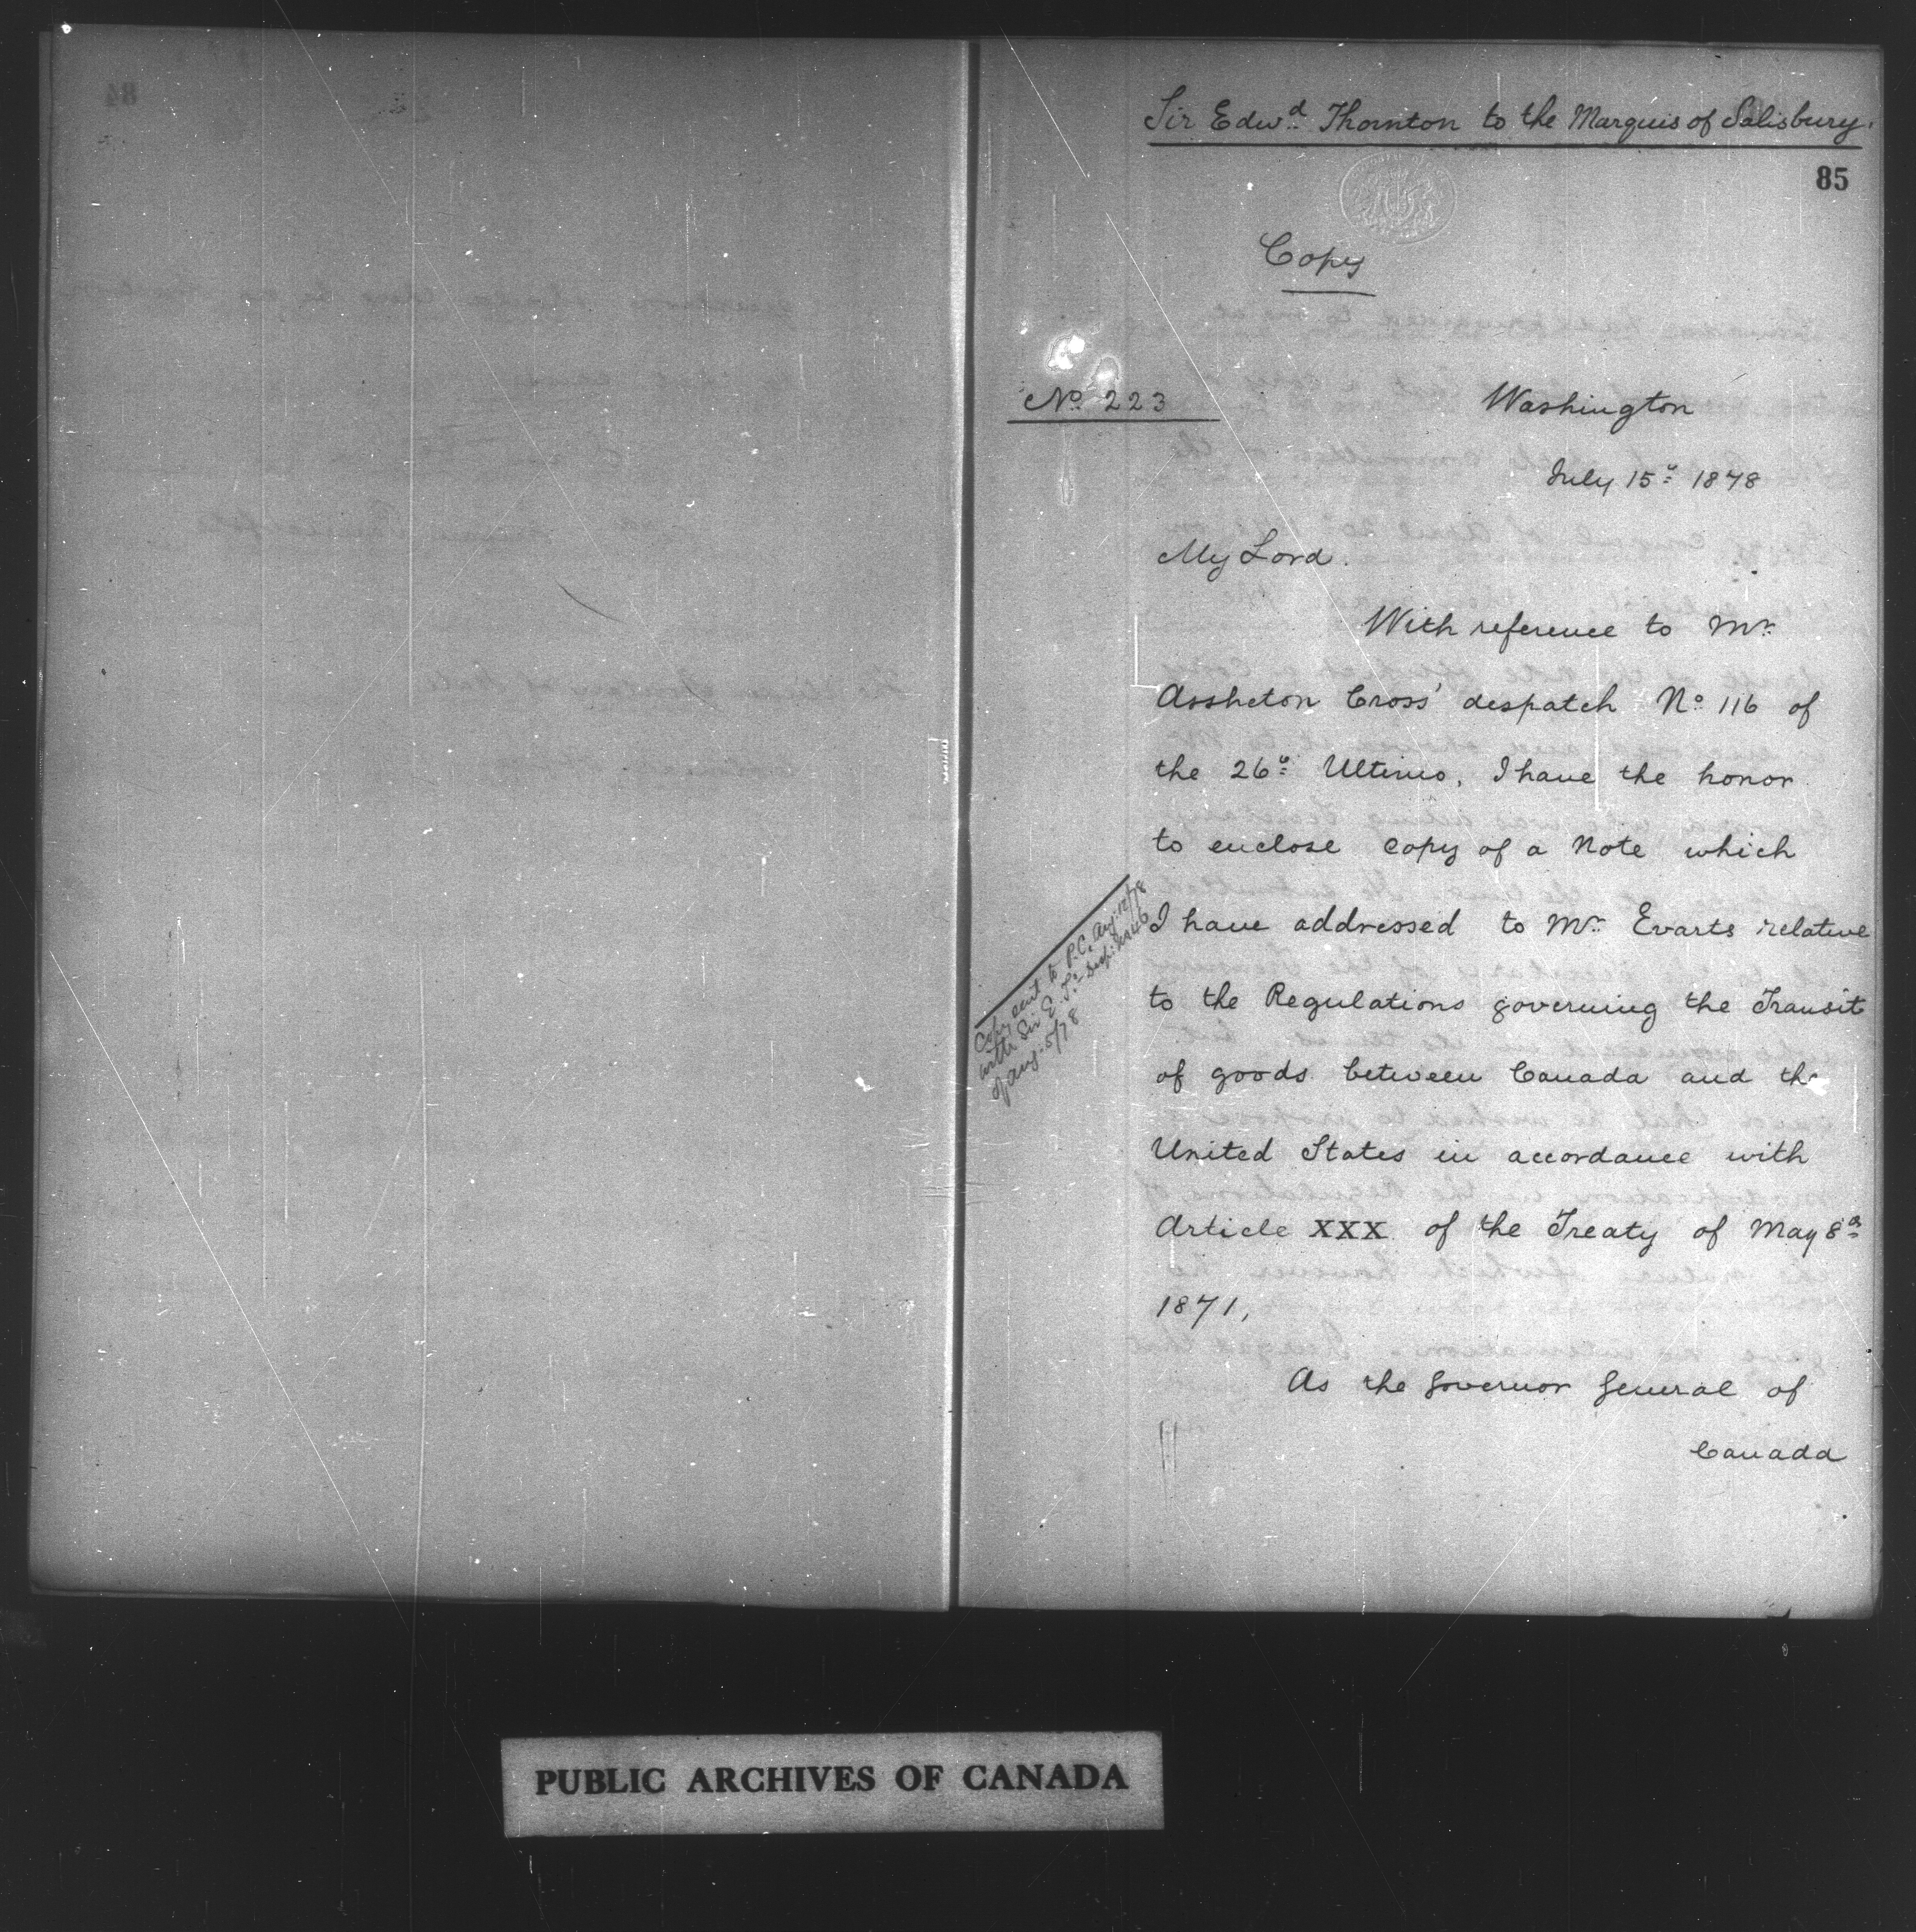 Sir Edwd Thornton to the Marquis of Salisbury.
85
Copy
No 223
Washington
July 15th 1878
My Lord.
With reference to Mr
Assheton Cross' despatch No 116 of
the 26th Ultimo, I have the honor
to enclose copy of a Note which
I have addressed to Mr Evarts relative
to the Regulations governing the Transit
of goods between Canada and the
United States in accordance with
Article XXX of the Treaty of May 8th
1871,
As the Governor General of
Canada
Copy sent to P.C. Aug 12/78
with Sir E. T.'s Desp: No 46
of Aug: 5/78
84
PUBLIC ARCHIVES OF CANADA